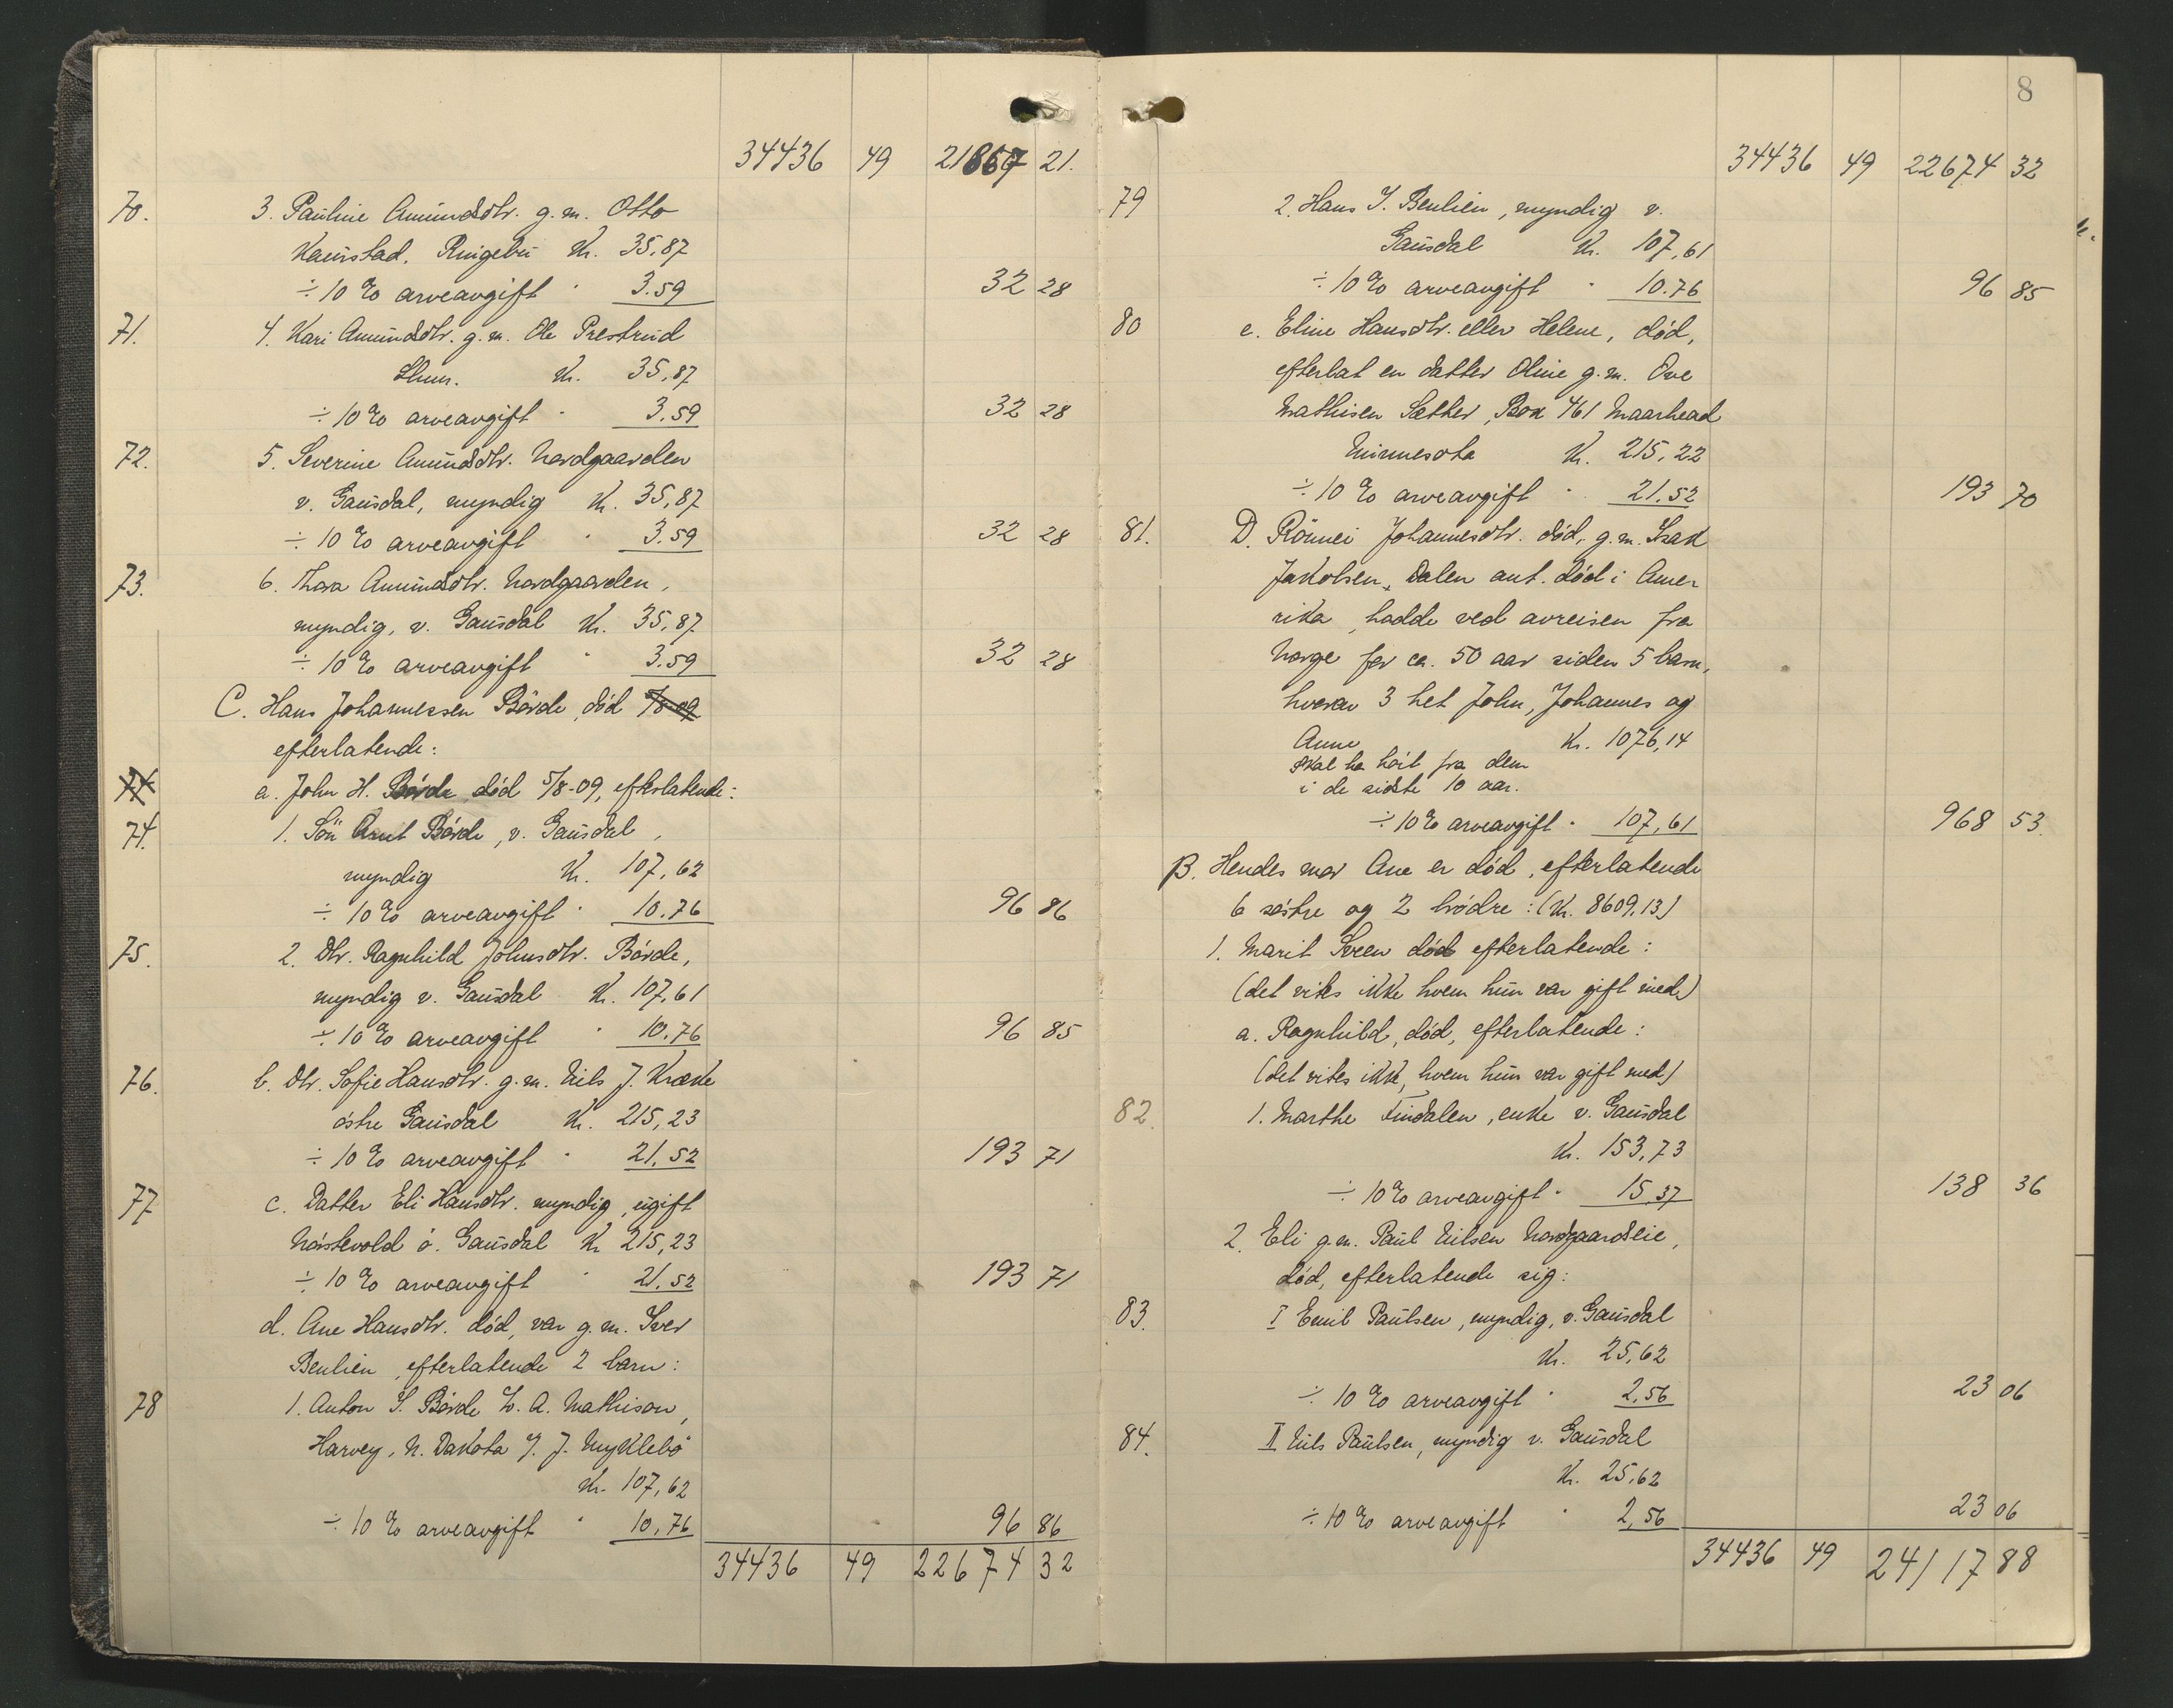 34436 49 21867 21.
70. 3. Pauline Amundsdtr. g.m. Otto
Kanstad. Ringebu Kr. 35,87
÷ 10 % arveavgift " 3.59 32 28
71. 4. Kari Amundsdtr. g.m. Ole Prestrud
Lhmr. Kr. 35,87
÷ 10 % arveavgift " 3.59 32 28
72. 5. Severine Amundsdtr. Nordgaarden
v. Gausdal, myndig Kr. 35,87
÷ 10 % arveavgift " 3.59 32 28
73. 6. Thora Amundsdtr. Nordgaarden,
myndig, v. Gausdal Kr. 35,87
÷ 10 % arveavgift " 3.59 32 28
C. Hans Johannessen Börde, död 5/8-09
efterlatende:
74 a. John H. Börde död 5/8-09, efterlatende:
74. 1. Sön Arnt Börde, v. Gausdal,
myndig Kr. 107,62
÷ 10 % arveavgift " 10.76 96 86
75. 2. Dtr. Ragnhild Johnsdtr. Börde,
myndig v. Gausdal Kr. 107,61
÷ 10 % arveavgift " 10.76 96 85
76. b. Dtr. Sofie Hansdtr. g.m. Nils J. Kræke
östre Gausdal Kr. 215,23
÷ 10 % arveavgift " 21.52 193 71
77 c. Datter Eli Hansdtr. myndig, ugift
Nöstevold ö. Gausdal Kr 215,23
÷ 10 % arveavgift " 21.52 193 71
d. Ane Hansdtr. död, var g.m. Iver
Benlien, efterlatende 2 barn:
78 1. Anton I. Börde L. A. Mathison,
Harvey, N. Dakota J. J. Myklebö
Kr. 107,62
÷ 10 % arveavgift " 10,76 96 86
34436 49 22674 32
8
34436 49 22674 32
79 2. Hans I. Benlien, myndig v.
Gausdal Kr. 107,61
÷ 10 % arveavgift " 10.76 96 85
80 e. Eline Hansdtr. eller Helene, död,
efterlat en datter Oline g.m. Ove
Mathisen Sæther, Box 461 Maarhead
Minnesota Kr. 215,22
÷ 10 % arveavgift " 21.52 193 70
81. D. Rönnei Johannesdtr. död, g.m. Isak
Jakobsen, Dalen ant. död i Amer
rika, hadde ved avreisen fra
Norge for ca. 50 aar siden 5 barn,
hvorav 3 het John, Johannes og
Anne Kr. 1076,14
Skal ha hört fra dem
i de sidste 10 aar.
÷ 10 % arveavgift " 107,61 968 53.
B. Hendes mor Ane er död, efterlatende
6 söstre og 2 brödre: (Kr. 8609,13)
1. Marit Sveen död efterlatende:
(det vites ikke hvem hun var gift med)
a. Ragnhild, död, efterlatende:
(det vites ikke, hvem hun var gift med)
82. 1. Marthe Findalen, enke v. Gausdal
Kr. 153,73
÷ 10 % arveavgift " 15.37 138 36
2. Eli g.m. Paul Nilsen Nordgaardseie,
död, efterlatende sig:
83. I Emil Paulsen, myndig, v. Gausdal
Kr. 25,62
÷ 10 % arveavgift " 2,56 23 06
84. II Nils Paulsen, myndig v. Gausdal
Kr. 25,62
÷ 10 % arveavgift " 2,56 23 06
34436 49 24117 88